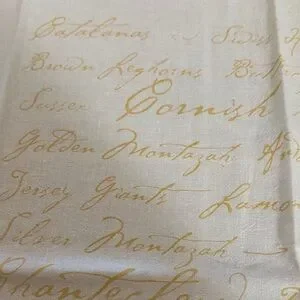 Catalanas Swiss
Brown Leghorns
Sussex Cornish
Golden Montazah
Jersey Giants Lamo
Silver Montazah
Chantecla